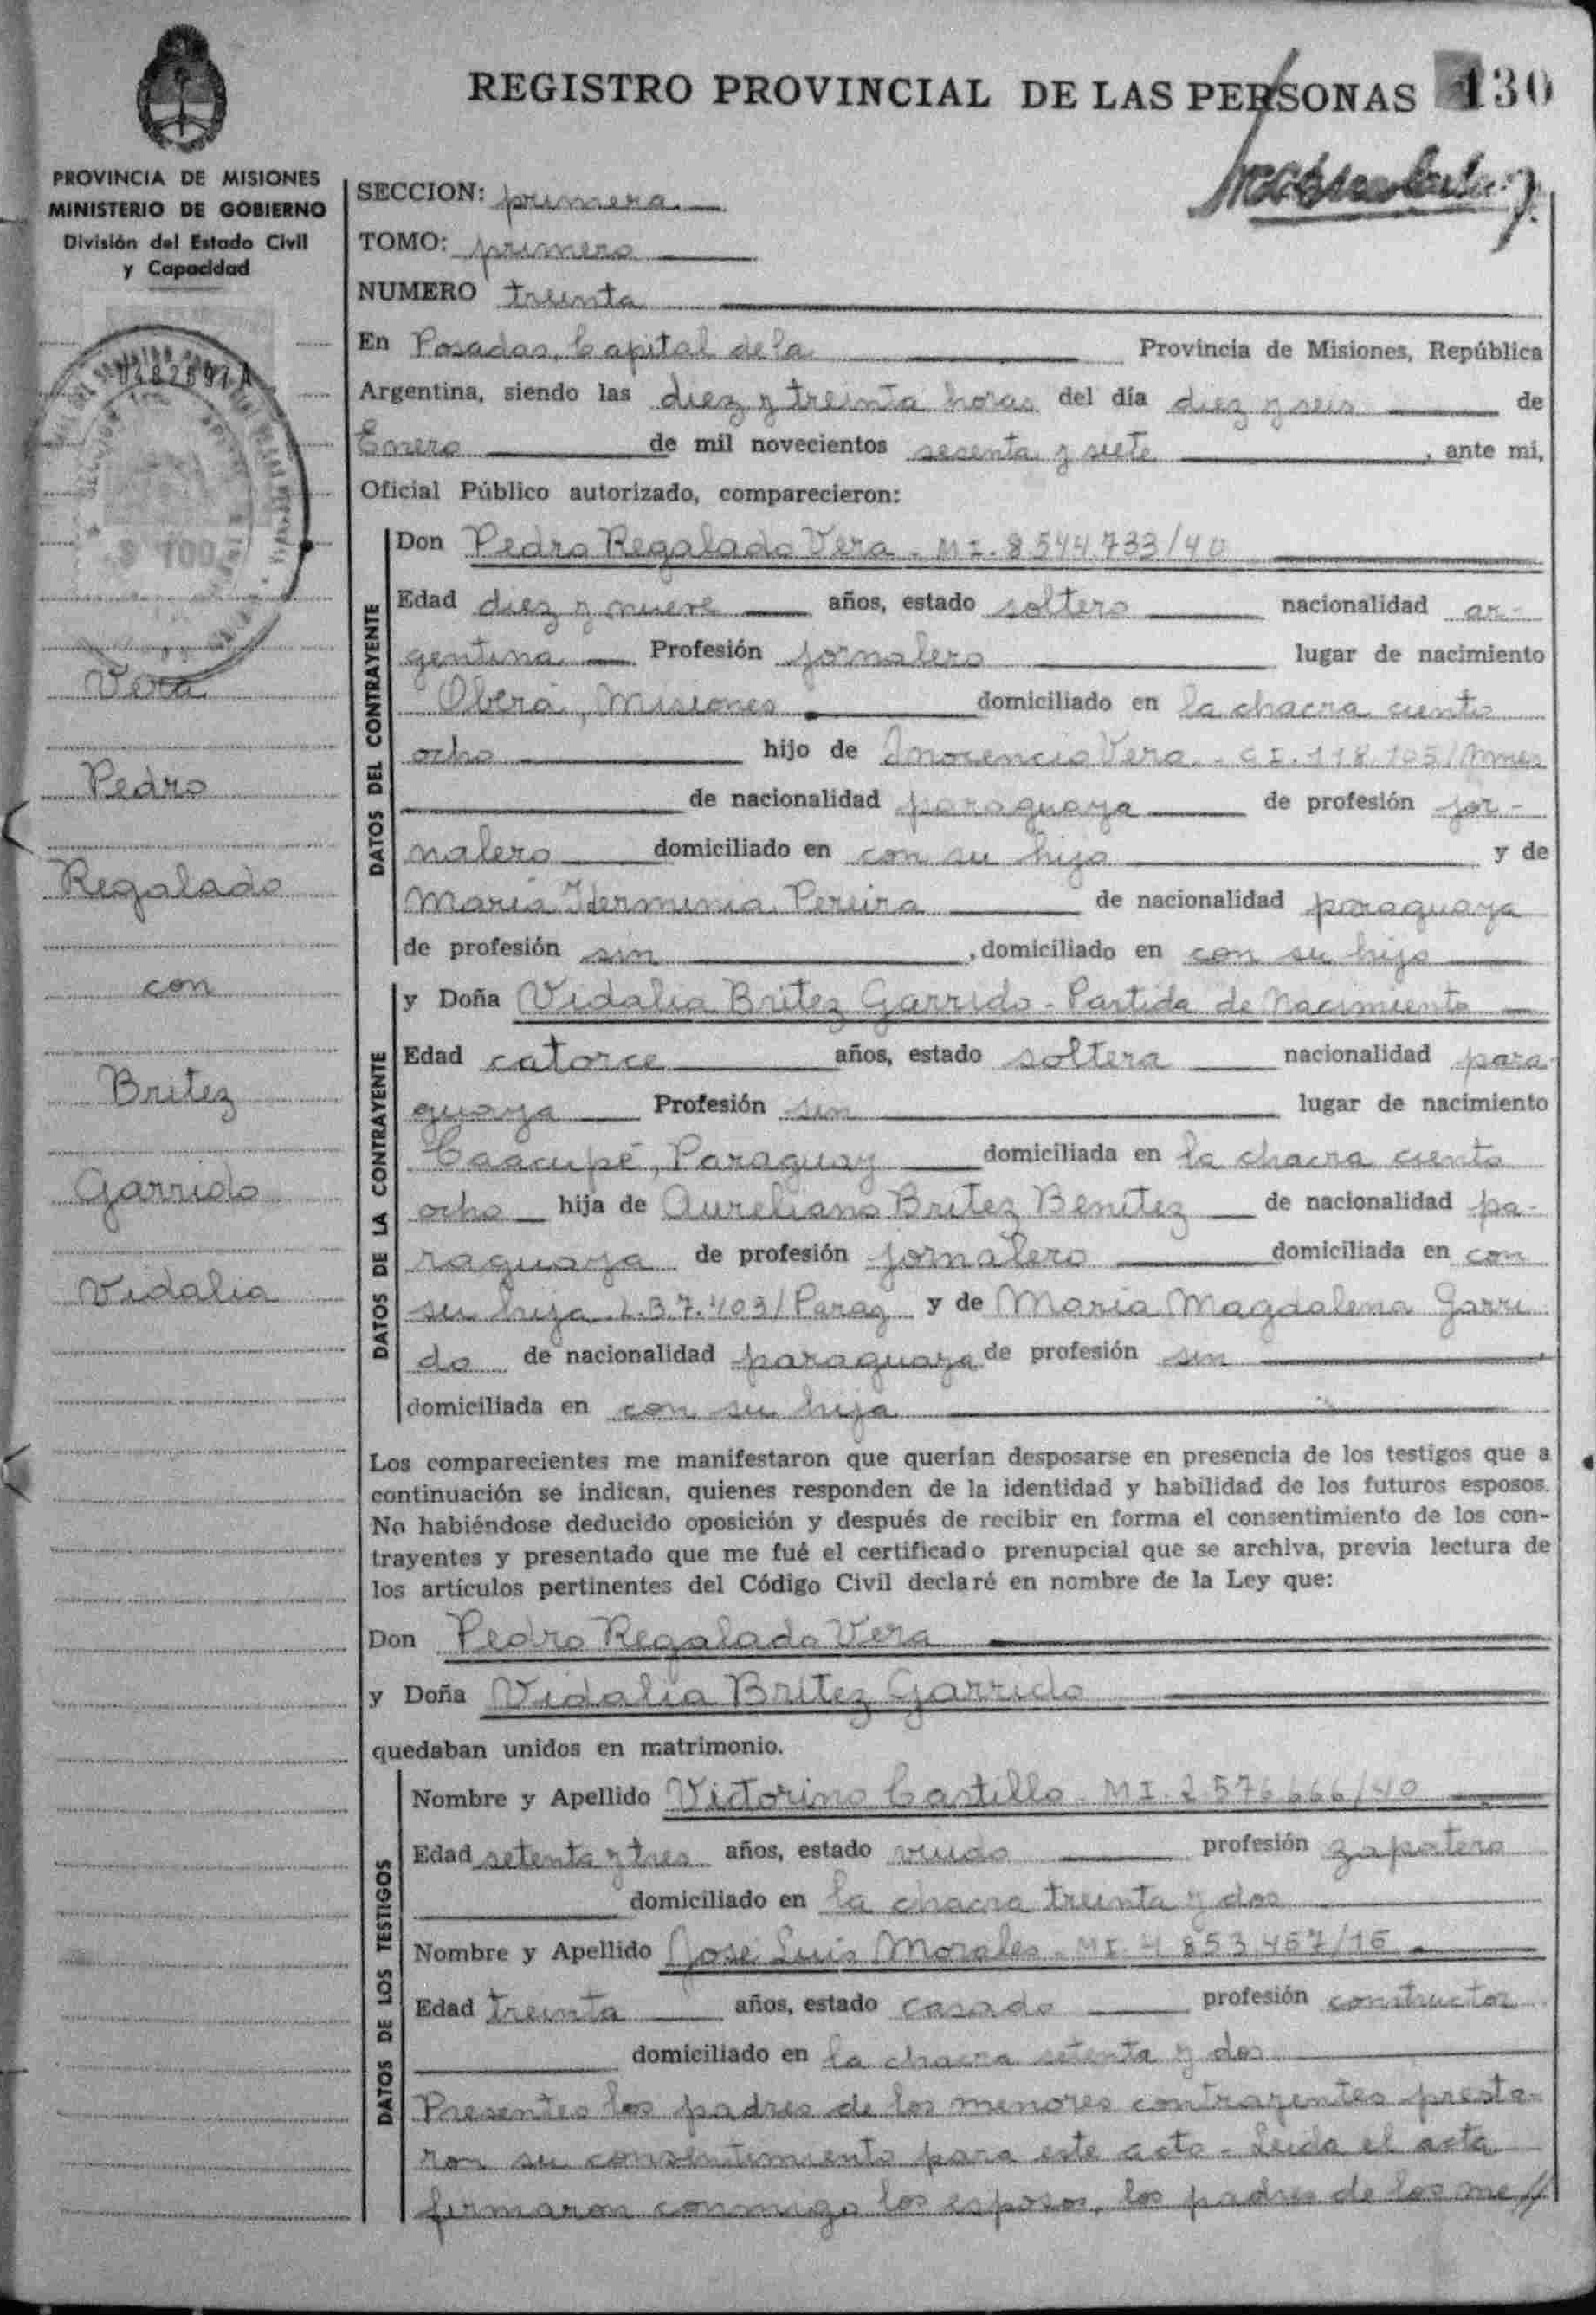 REGISTRO PROVINCIAL DE LAS PERSONAS 130
PROVINCIA DE MISIONES
MINISTERIO DE GOBIERNO
División del Estado Civil
y Capacidad
SECCION: primera
TOMO: primero
NUMERO treinta
En Posadas, Capital de la Provincia de Misiones, República
Argentina, siendo las diez y treinta horas del día diez y seis de
Enero de mil novecientos sesenta y siete, ante mi,
Oficial Público autorizado, comparecieron:
DATOS DEL CONTRAYENTE
Don Pedro Regalado Vera - M I. 8 544.733/40
Edad diez y nueve años, estado soltero nacionalidad ar-
gentina Profesión jornalero lugar de nacimiento
Oberá, Misiones domiciliado en la chacra ciento
ocho hijo de Inocencio Vera - C I. 118.105/Mnes
de nacionalidad paraguaya de profesión jor-
nalero domiciliado en con su hijo y de
María Herminia Pereira de nacionalidad paraguaya
de profesión sin, domiciliado en con su hijo
DATOS DE LA CONTRAYENTE
y Doña Vidalia Britez Garrido - Partida de Nacimiento
Edad catorce años, estado soltera nacionalidad para-
guaya Profesión sin lugar de nacimiento
Caacupé, Paraguay domiciliada en la chacra ciento
ocho hija de Aureliano Britez Benitez de nacionalidad pa-
raguaya de profesión jornalero domiciliada en con
su hija. L.B.7.403/Parag y de María Magdalena Garri
do de nacionalidad paraguaya de profesión sin
domiciliada en con su hija
Los comparecientes me manifestaron que querían desposarse en presencia de los testigos que a
continuación se indican, quienes responden de la identidad y habilidad de los futuros esposos.
No habiéndose deducido oposición y después de recibir en forma el consentimiento de los con-
trayentes y presentado que me fué el certificado prenupcial que se archiva, previa lectura de
los artículos pertinentes del Código Civil declaré en nombre de la Ley que:
Don Pedro Regalado Vera
y Doña Vidalia Britez Garrido
quedaban unidos en matrimonio.
DATOS DE LOS TESTIGOS
Nombre y Apellido Victorino Castillo - M I. 2.576.666/40
Edad setenta y tres años, estado viudo profesión zapatero
domiciliado en la chacra treinta y dos
Nombre y Apellido José Luis Morales - M I. 4 853.467/16
Edad treinta años, estado casado profesión constructor
domiciliado en la chacra setenta y dos
Presentes los padres de los menores contrayentes presta-
ron su consentimiento para este acto - Leida el acta
firmaron conmigo los esposos, los padres de los me//
Vera
Pedro
Regalado
con
Britez
Garrido
Vidalia